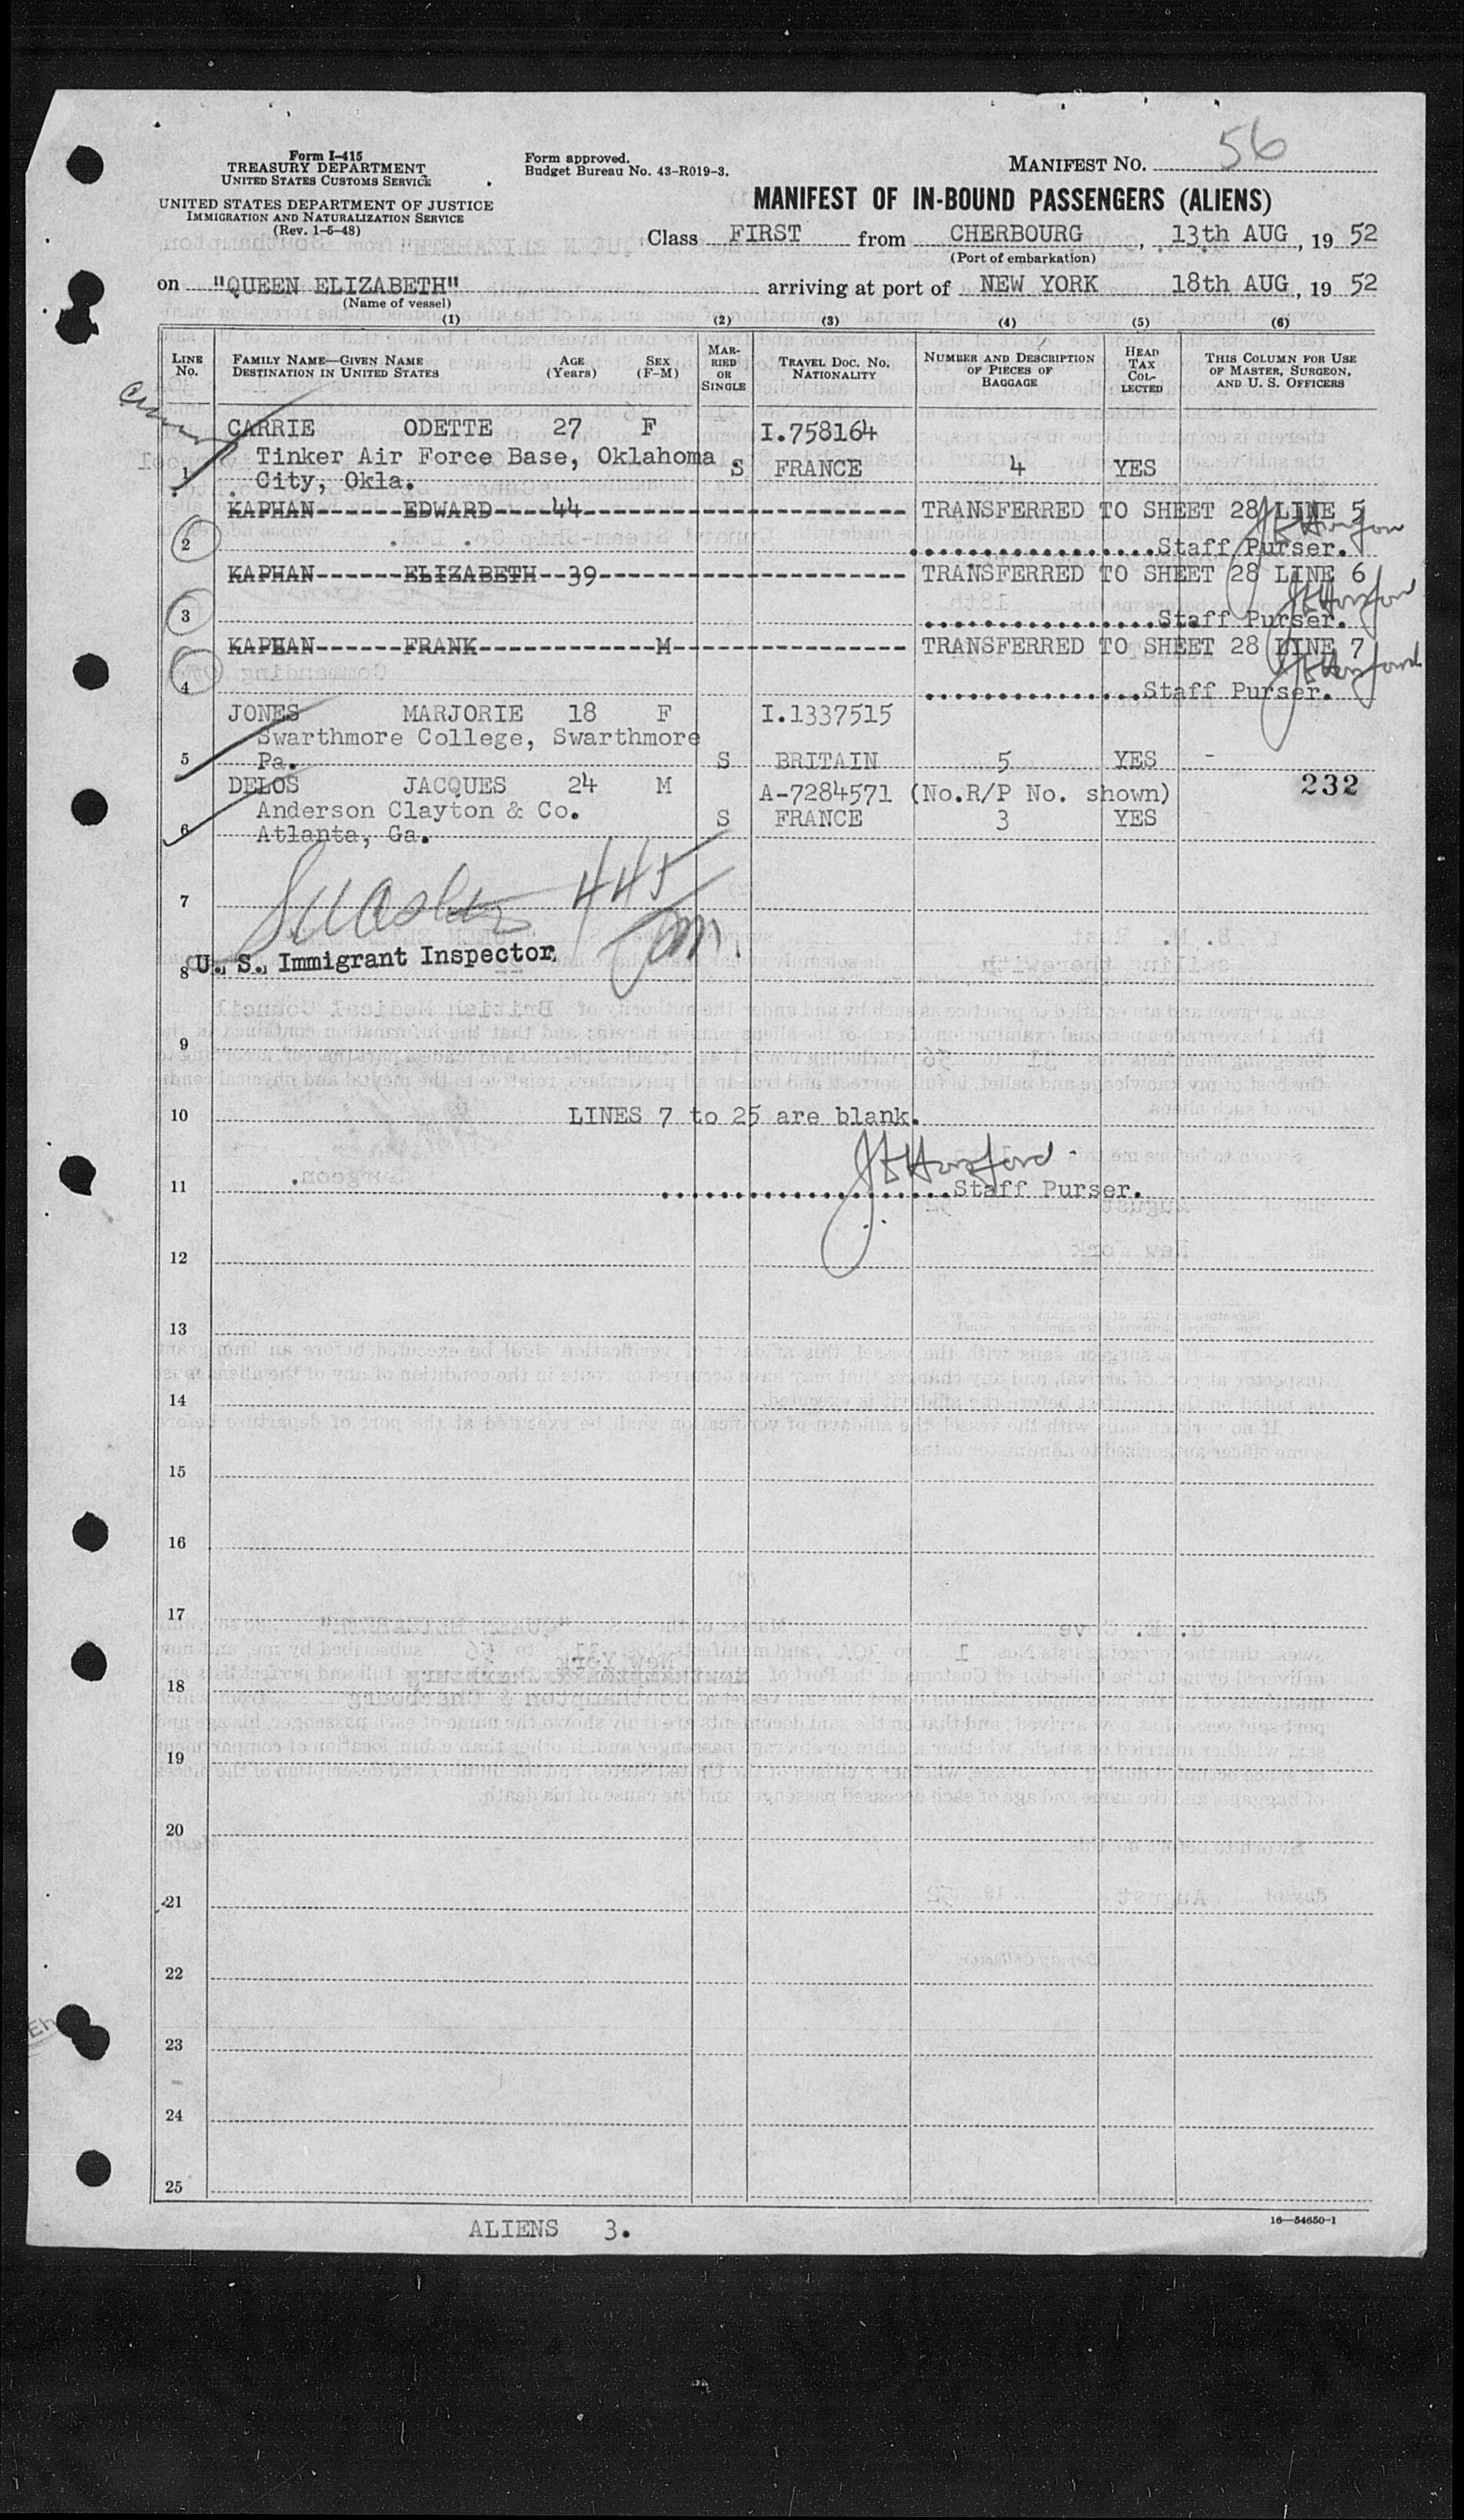 Form I-415
TREASURY DEPARTMENT
UNITED STATES CUSTOMS SERVICE
UNITED STATES DEPARTMENT OF JUSTICE
IMMIGRATION AND NATURALIZATION SERVICE
(Rev. 1-5-48)
Form approved.
Budget Bureau No. 43-R019-3.
MANIFEST NO. 56
MANIFEST OF IN-BOUND PASSENGERS (ALIENS)
Class FIRST from CHERBOURG, 13th AUG, 19 52
(Port of embarkation)
on "QUEEN ELIZABETH" arriving at port of NEW YORK 18th AUG, 19 52
(Name of vessel)
(1) (2) (3) (4) (5) (6)
LINE No. FAMILY NAME—GIVEN NAME DESTINATION IN UNITED STATES AGE (Years) SEX (F-M) MARRIED OR SINGLE TRAVEL DOC. NO. NATIONALITY NUMBER AND DESCRIPTION OF PIECES OF BAGGAGE HEAD TAX COLLECTED THIS COLUMN FOR USE OF MASTER, SURGEON, AND U. S. OFFICERS
CARRIE ODETTE 27 F I.758164
Tinker Air Force Base, Oklahoma S FRANCE 4 YES
1 City, Okla.
KAPHAN------EDWARD----44---------------------- TRANSFERRED TO SHEET 28 LINE 5
2 .................Staff Purser.
KAPHAN------ELIZABETH--39--------------------- TRANSFERRED TO SHEET 28 LINE 6
3 .................Staff Purser.
KAPHAN------FRANK------------M---------------- TRANSFERRED TO SHEET 28 LINE 7
4 ...............Staff Purser.
JONES MARJORIE 18 F I.1337515
Swarthmore College, Swarthmore
5 Pa. S BRITAIN 5 YES -
DELOS JACQUES 24 M A-7284571 (No.R/P No. shown) 232
Anderson Clayton & Co. S FRANCE 3 YES
6 Atlanta, Ga.
7 445
8 U. S. Immigrant Inspector
9
10 LINES 7 to 25 are blank.
11 ....................Staff Purser.
12
13
14
15
16
17
18
19
20
21
22
23
24
25
ALIENS 3.
16—54650-1